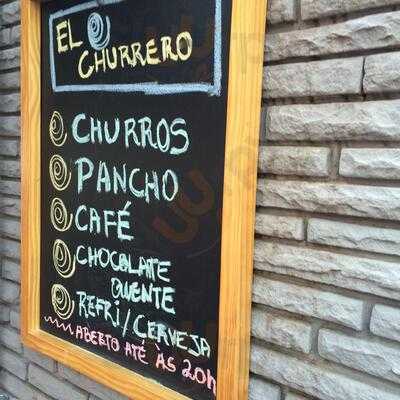 EL CHURRERO
CHURROS
PANCHO
CAFÉ
CHOCOLATE
QUENTE
REFRI/CERVEJA
ABERTO ATÉ ÀS 20H